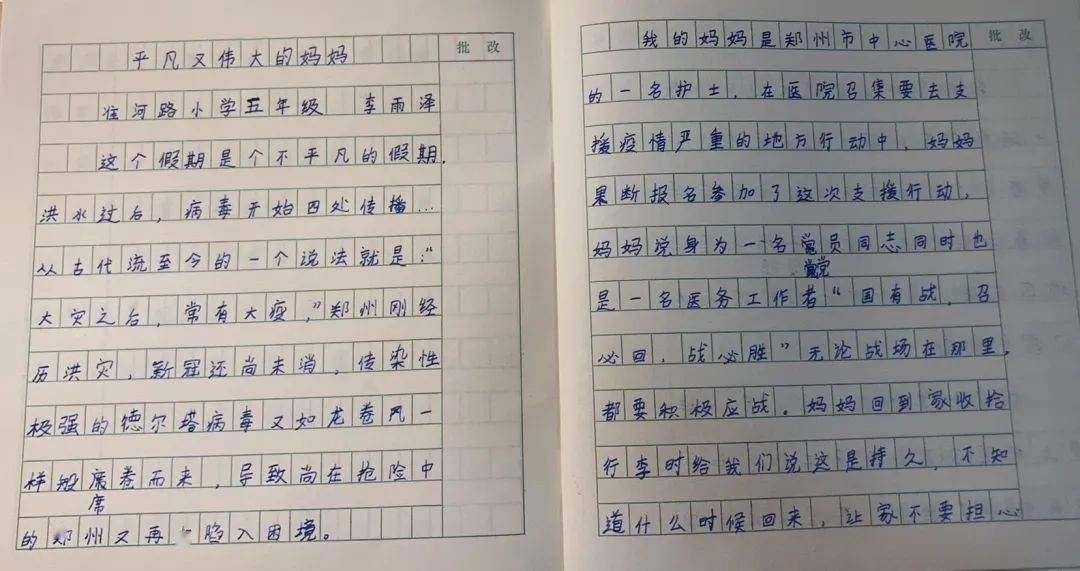 批改
平凡又伟大的妈妈
淮河路小学五年级 李雨泽
这个假期是个不平凡的假期.
洪水过后，病毒开始四处传播…
从古代流至今的一个说法就是:“
大灾之后，常有大疫，”郑州刚经
历洪灾，新冠还尚未消，传染性
极强的德尔塔病毒又如龙卷风一
样般席卷而来，导致尚在抢险中
席
的郑州又再 陷入困境。
批改
我的妈妈是郑州市中心医院
的一名护士，在医院召集要去支
援疫情严重的地方行动中，妈妈
果断报名参加了这次支援行动，
妈妈说身为一名党员同志同时也
党
是一名医务工作者“国有战，召
必回，战必胜”无论战场在那里，
都要积极应战。妈妈回到家收拾
行李时给我们说这是持久，不知
道什么时候回来，让家不要担心